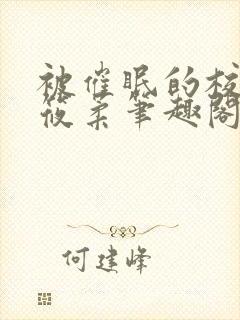 被催眠的校
筱柔笔趣阁
何建峰